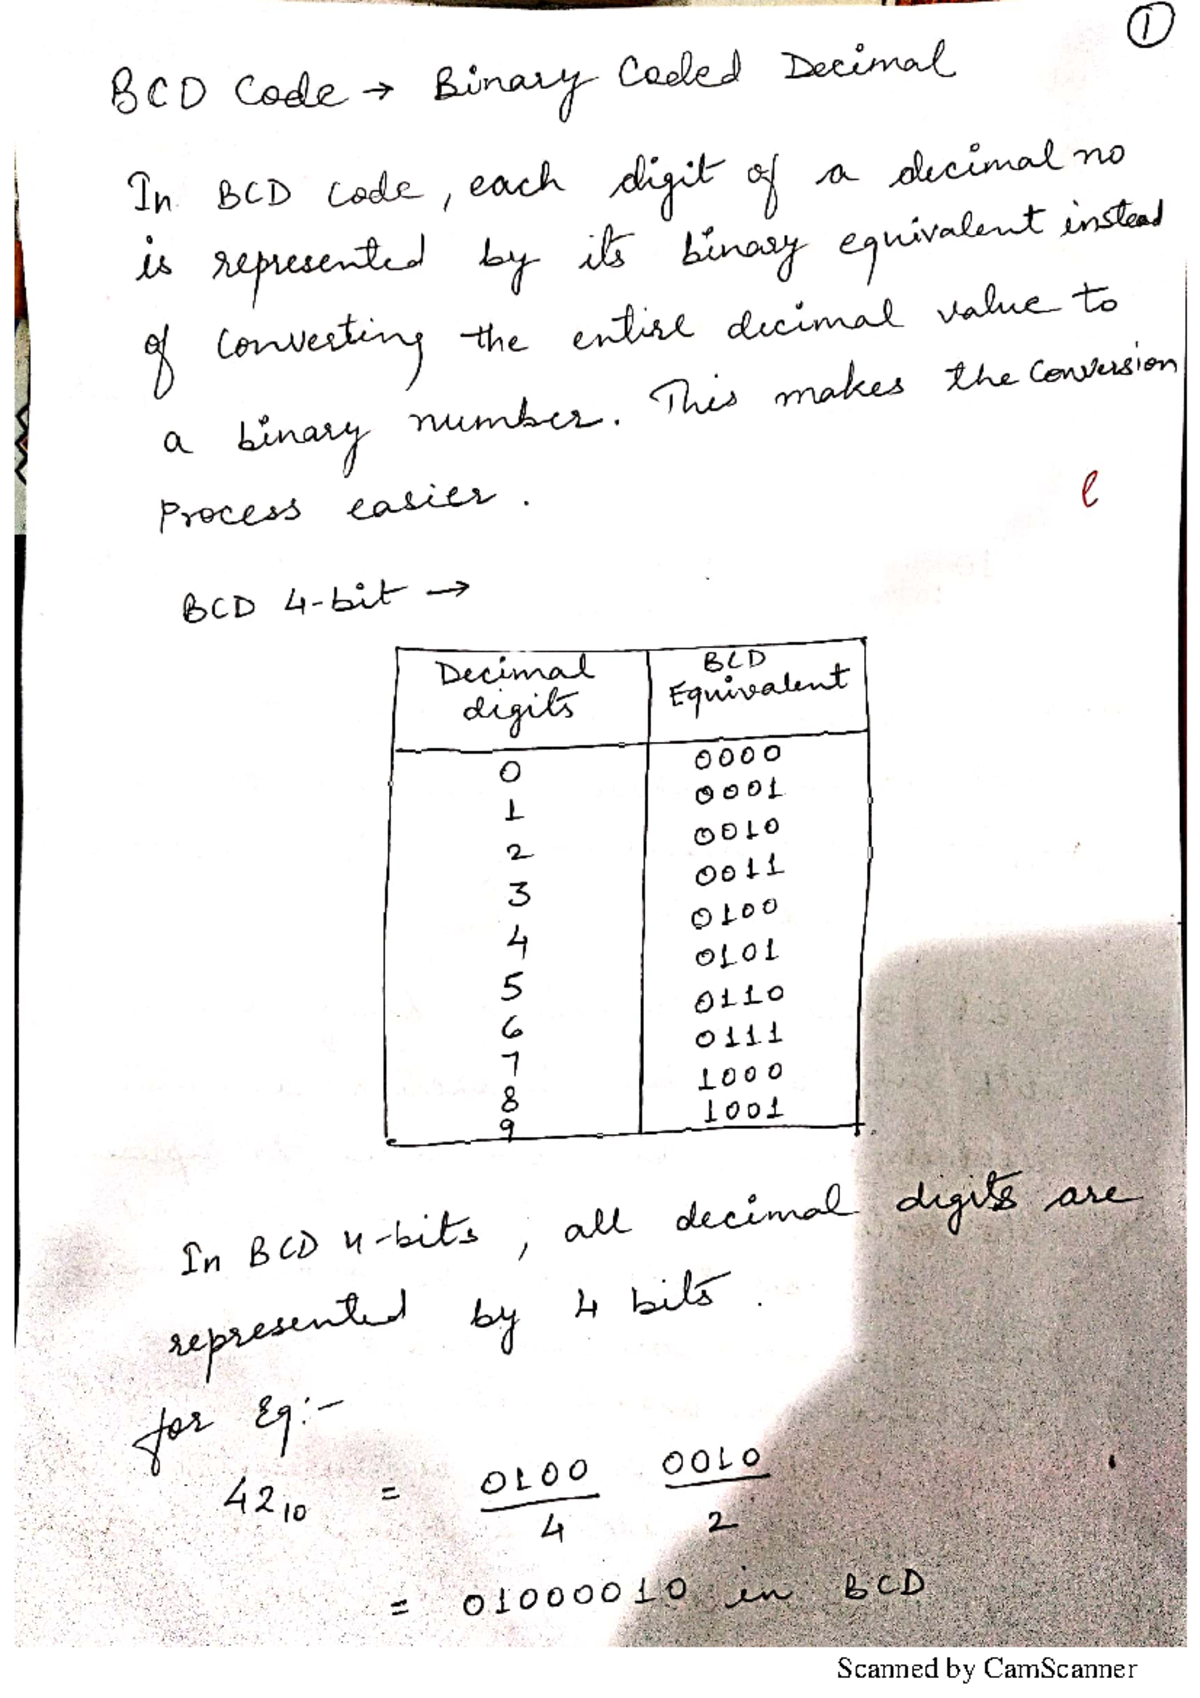 1
BCD Code → Binary Coded Decimal
In BCD Code, each digit of a decimal no
is represented by its binary equivalent instead
of converting the entire decimal value to
a binary number. This makes the Conversion
Process easier.
e
BCD 4-bit →
Decimal digits | BCD Equivalent
0 0000
1 0001
2 0010
3 0011
4 0100
5 0101
6 0110
7 0111
8 1000
9 1001
In BCD 4-bits, all decimal digits are
represented by 4 bits.
for Eg:-
42₁₀ = 0100 0010
4 2
= 01000010 in BCD
Scanned by CamScanner